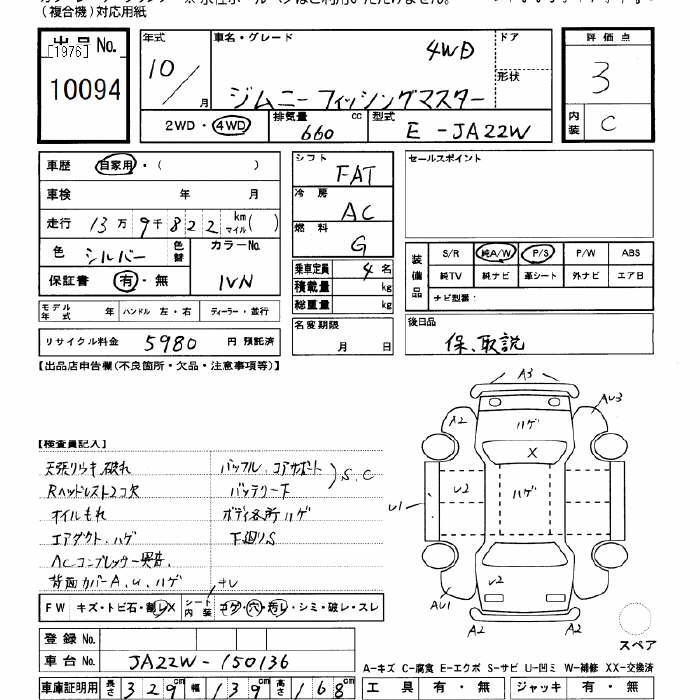 (複合機)対応用紙
出品 No.
[1976]
10094
年式 10/ 月
車名・グレード 4WD
ジムニーフィッシングマスター
ドア
形状
2WD・4WD
排気量 660 cc
型式 E-JA22W
評価点
3
内装 C
車歴 自家用・( )
車検 年 月
走行 13万9千822 km マイル( )
色 シルバー 色替
カラーNo. 1VN
保証書 有・無
シフト FAT
冷房 AC
燃料 G
乗車定員 4名
積載量 kg
総重量 kg
名変期限
月 日
セールスポイント
装備品
S/R 純A/W P/S P/W ABS
純TV 純ナビ 革シート 外ナビ エアB
ナビ型番:
後日品
保、取説
モデル年式 年 ハンドル 左・右 ディーラー・並行
リサイクル料金 5980 円 預託済
【出品店申告欄(不良箇所・欠品・注意事項等)】
【検査員記入】
天張りらキ破れ バッフル、コアサポート S.C
Rヘッドレスト2コ欠 バッテリー下
オイルもれ ボディ各所ハゲ
エアダクト、ハゲ 下廻りS
ACコンプレッサー異音.
背面カバーA、U、ハゲ
FW キズ・トビ石・割レX シート内装 コゲ・穴・汚レ・シミ・破レ・スレ
登録No.
車台No. JA22W-150136
車庫証明用 長さ 329cm 幅 139cm 高さ 168cm
A3
A2
AU3
ハゲ
X
U1
U2
ハゲ
U2
AU1
A2
A2
スペア
A-キズ C-腐食 E-エクボ S-サビ U-凹ミ W-補修 XX-交換済
工具 有・無 ジャッキ 有・無